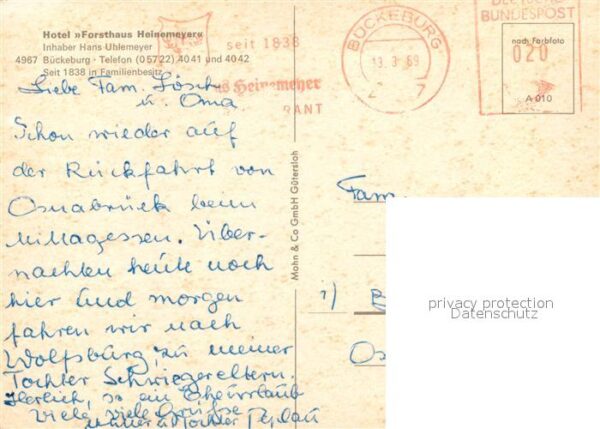 Hotel »Forsthaus Heinemeyer«
Inhaber Hans Uhlemeyer
4967 Bückeburg · Telefon (05722) 4041 und 4042
Seit 1838 in Familienbesitz
seit 1838
Heinemeyer
RANT
BÜCKEBURG
DEUTSCHE
BUNDESPOST
020
nach Farbfoto
A 010
Liebe Fam.
u. Oma
Schon wieder auf
der Rückfahrt von
Osnabrück beim
Mittagessen. Über-
nachten heute noch
hier und morgen
fahren wir nach
Wolfsburg, zu meiner
Tochter Schwiegereltern.
Herrlich, so ein Eheurlaub
Viele, viele Grüsse
Mutter u. Tochter
Mohn & Co GmbH Gütersloh
Fam.
privacy protection
Datenschutz